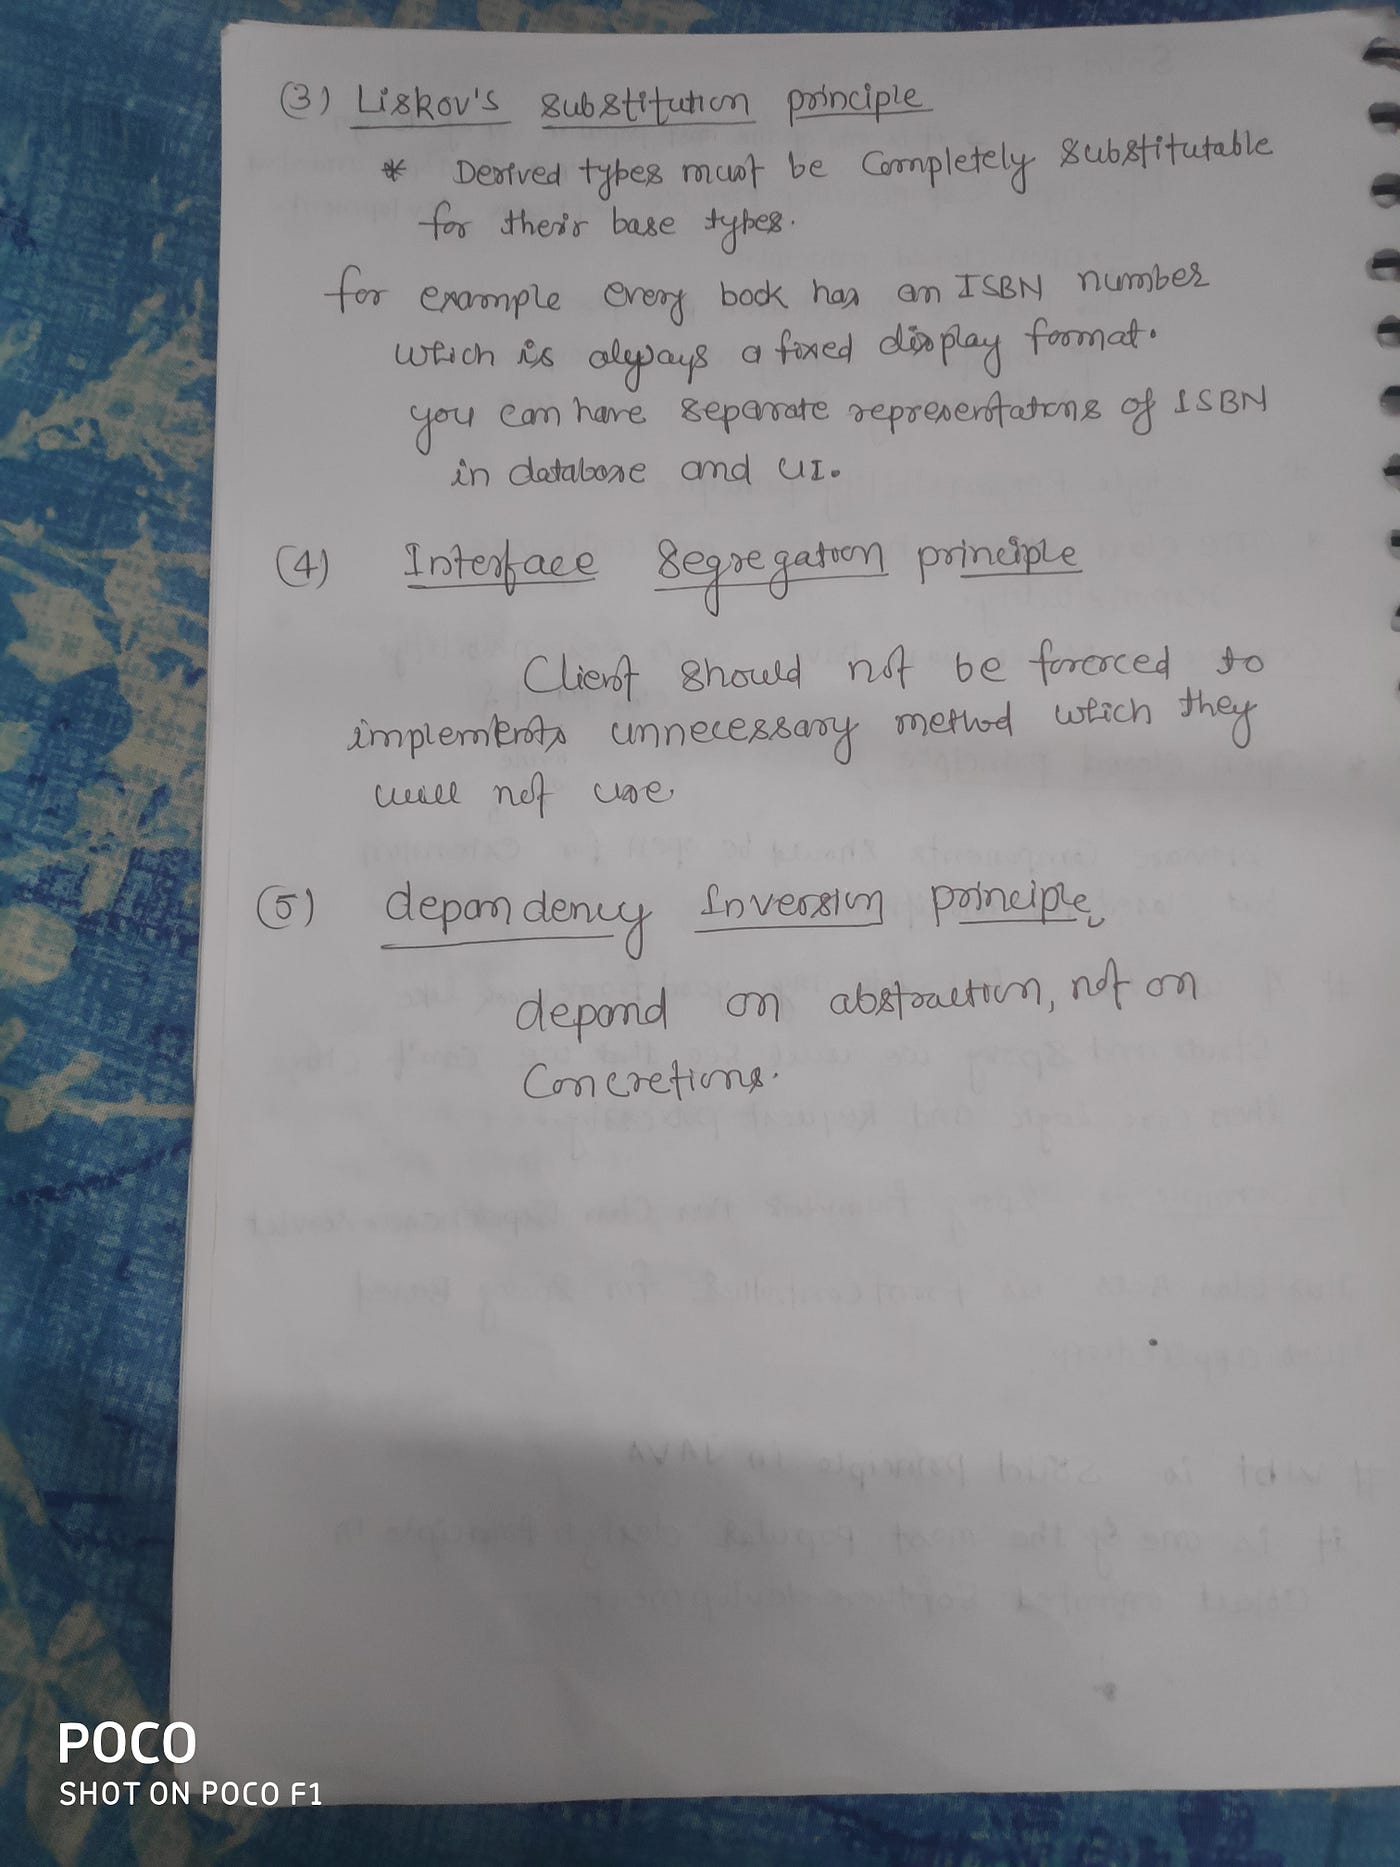 (3) Liskov's substitution principle
* Derived types must be Completely substitutable
for their base types.
for example every book has an ISBN number
which is always a fixed display format.
you can have separate representations of ISBN
in database and UI.
(4) Interface Segregation principle
Client should not be forerced to
implements unnecessary method which they
will not use.
(5) dependency Inversion principle,
depend on abstraction, not on
Concretions.
POCO
SHOT ON POCO F1